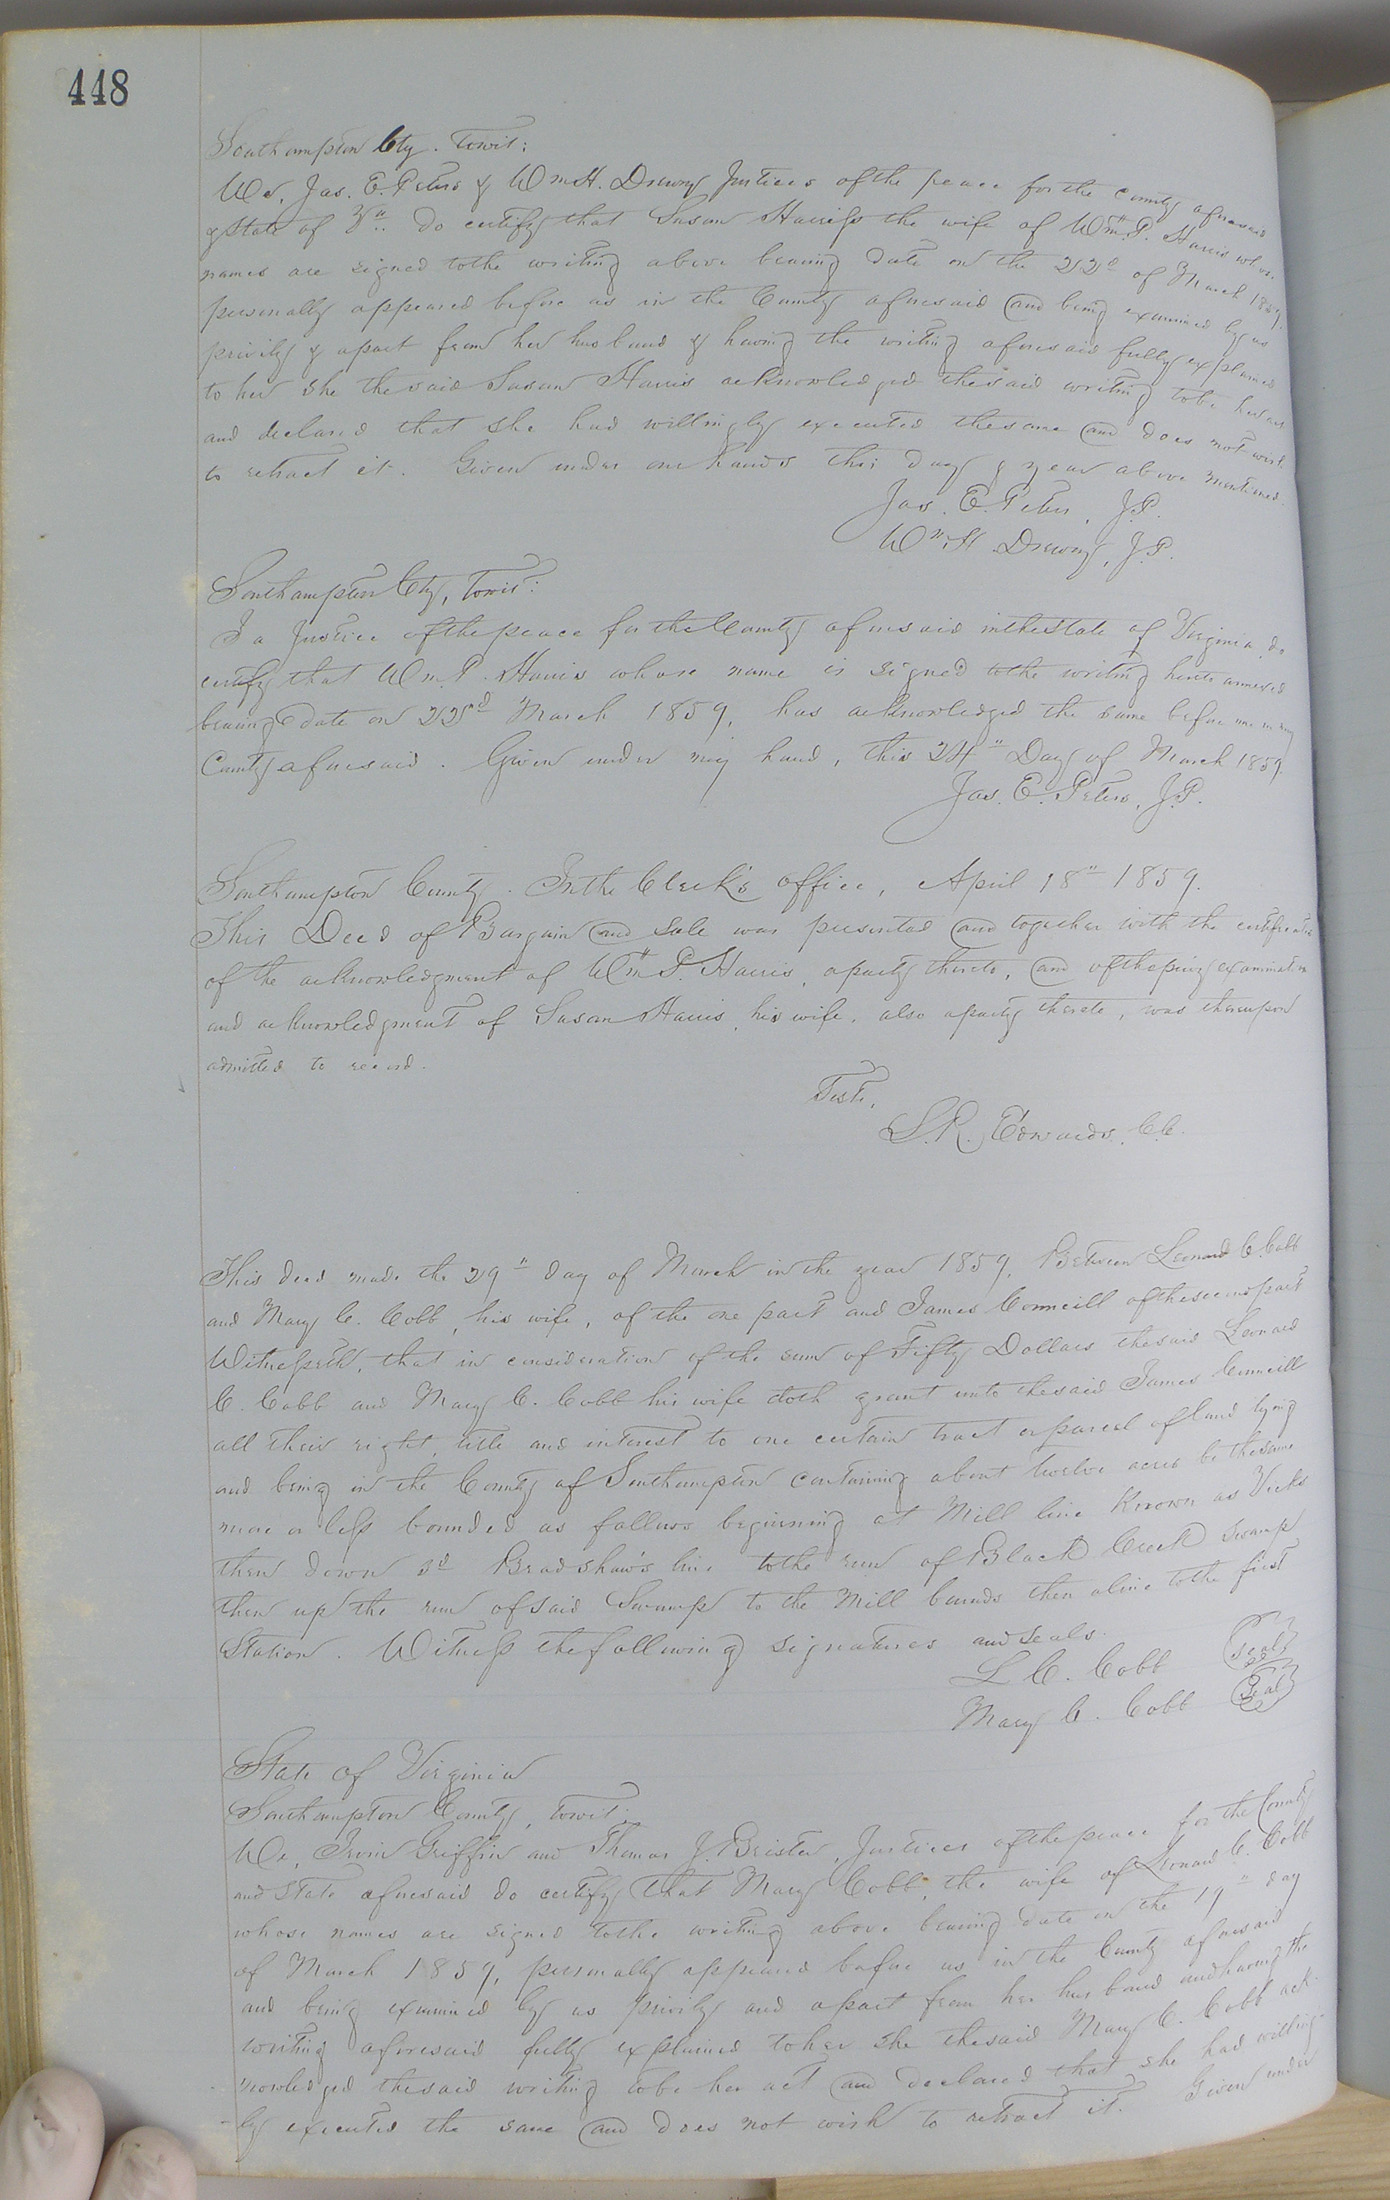 448
Southampton Cty. Towit:
We, Jas. E. Peters & Wm H. Drewry Justices of the peace for the county aforesaid
& State of Va. do certify that Susan Harriss the wife of Wm. P. Harris whose
names are signed to the writing above bearing date on the 22d of March 1859,
personally appeared before us in the County aforesaid and being examined by us
privily & apart from her husband & having the writing aforesaid fully explained
to her she the said Susan Harris acknowledged the said writing to be her act
and declared that she had willingly executed the same and does not wish
to retract it. Given under our hands this day & year above mentioned.
Jas. E. Peters, J.P.
Wm H. Drewry, J.P.
Southampton Cty, Towit:
I a Justice of the peace for the County aforesaid in the State of Virginia do
certify that Wm. P. Harris whose name is signed to the writing hereto annexed
bearing date on 22nd March 1859, has acknowledged the same before me in my
County aforesaid. Given under my hand, this 24th Day of March 1859.
Jas. E. Peters, J.P.
Southampton County. In the Clerk's office, April 18th 1859.
This Deed of Bargain and Sale was presented and together with the certificates
of the acknowledgment of Wm P. Harris, a party thereto, and of the privy examination
and acknowledgment of Susan Harris, his wife, also a party thereto, was thereupon
admitted to record.
Teste,
L. R. Edwards, C.C.
This deed made the 29th day of March in the year 1859, Between Leonard C. Cobb
and Mary C. Cobb, his wife, of the one part and James Conneill of the second part
Witnesseth, that in consideration of the sum of Fifty Dollars the said Leonard
C. Cobb and Mary C. Cobb his wife doth grant unto the said James Conneill
all their right, title and interest to one certain tract or parcel of land lying
and being in the County of Southampton containing about twelve acres be the same
more or less bounded as follows beginning at Mill line known as Vicks
then down sd Bradshaw's line to the run of Black Creek Swamp
then up the run of said Swamp to the Mill bounds then a line to the first
Station. Witness the following signatures and seals.
L C. Cobb Seal
Mary C. Cobb Seal
State of Virginia
Southampton County, towit:
We, Irvin Griffin and Thomas J. Brister, Justices of the peace for the County
and State aforesaid do certify that Mary Cobb, the wife of Leonard C. Cobb
whose names are signed to the writing above bearing date on the 19th day
of March 1859, personally appeared before us in the County aforesaid
and being examined by us privily and apart from her husband and having the
writing aforesaid fully explained to her she the said Mary C. Cobb ack-
nowledged the said writing to be her act and declared that she had willing-
ly executed the same and does not wish to retract it. Given under